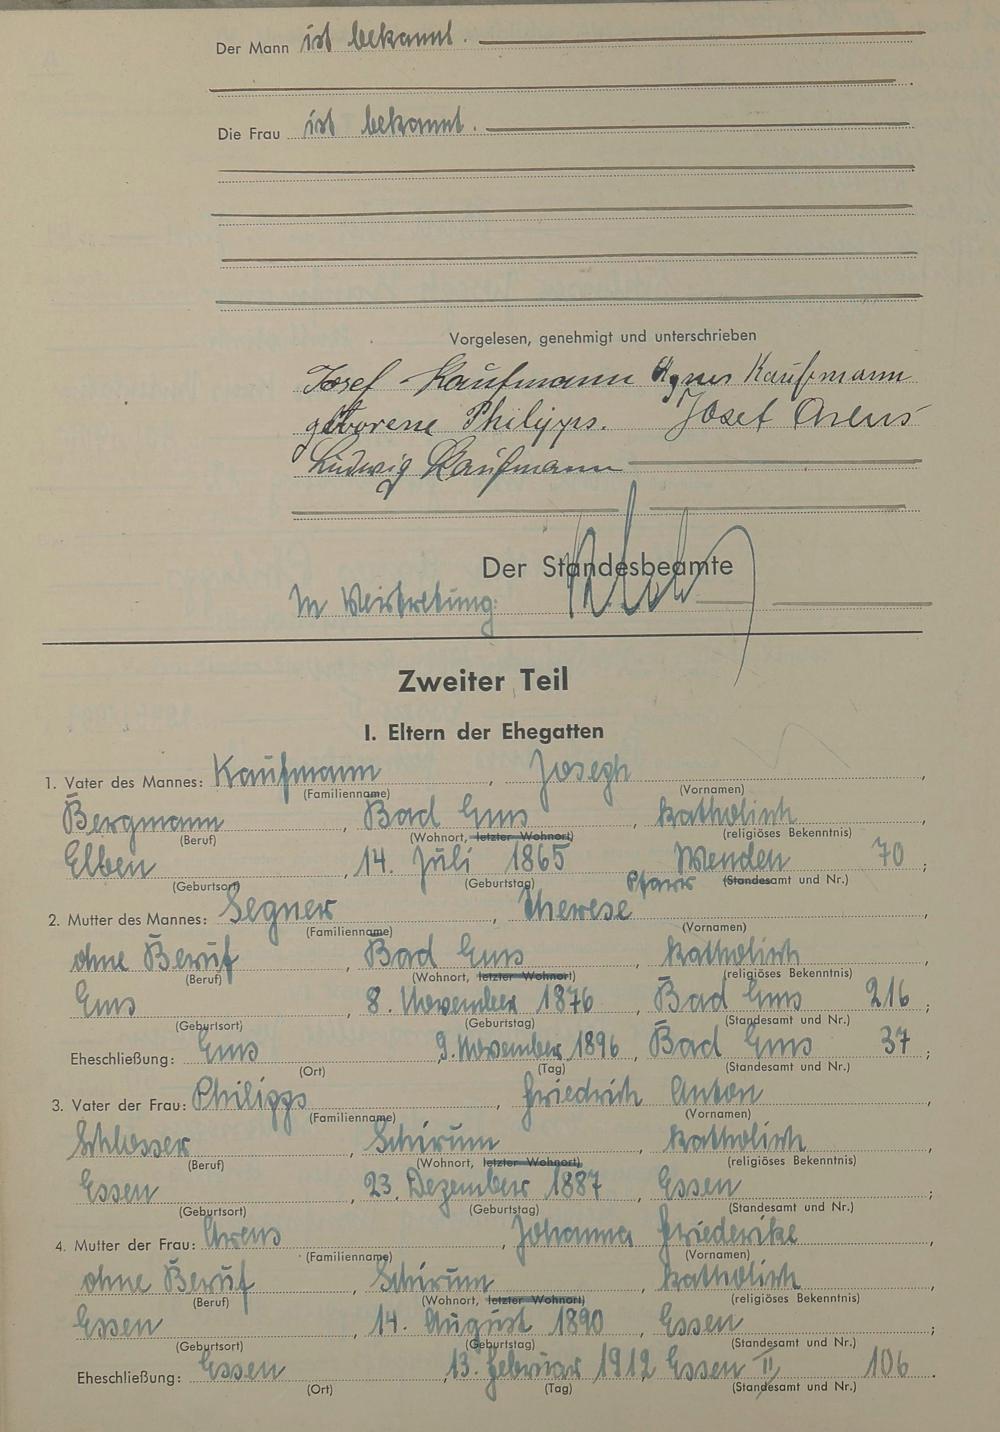 Der Mann ist bekannt.
Die Frau ist bekannt.
Vorgelesen, genehmigt und unterschrieben
Josef Kaufmann Agnes Kaufmann
geborene Philipps. Josef Arens
Ludwig Kaufmann
Der Standesbeamte
In Vertretung:
Zweiter Teil
I. Eltern der Ehegatten
1. Vater des Mannes: Kaufmann, Joseph,
(Familienname) (Vornamen)
Bergmann, Bad Ems, katholisch
(Beruf) (Wohnort, letzter Wohnort) (religiöses Bekenntnis)
Elben, 14. Juli 1865 Wenden 70;
(Geburtsort) (Geburtstag) Pfarr (Standesamt und Nr.)
2. Mutter des Mannes: Segner, Therese,
(Familienname) (Vornamen)
ohne Beruf, Bad Ems, katholisch
(Beruf) (Wohnort, letzter Wohnort) (religiöses Bekenntnis)
Ems, 8. November 1876, Bad Ems 216;
(Geburtsort) (Geburtstag) (Standesamt und Nr.)
Eheschließung: Ems 9. November 1896, Bad Ems 37;
(Ort) (Tag) (Standesamt und Nr.)
3. Vater der Frau: Philipps, Friedrich Anton,
(Familienname) (Vornamen)
Schlosser, Schirum, katholisch,
(Beruf) (Wohnort, letzter Wohnort) (religiöses Bekenntnis)
Essen, 23. Dezember 1887, Essen;
(Geburtsort) (Geburtstag) (Standesamt und Nr.)
4. Mutter der Frau: Arens, Johanna Friederike,
(Familienname) (Vornamen)
ohne Beruf, Schirum, katholisch,
(Beruf) (Wohnort, letzter Wohnort) (religiöses Bekenntnis)
Essen, 14. August 1890, Essen;
(Geburtsort) (Geburtstag) (Standesamt und Nr.)
Eheschließung: Essen, 13. Februar 1912 Essen II, 106.
(Ort) (Tag) (Standesamt und Nr.)